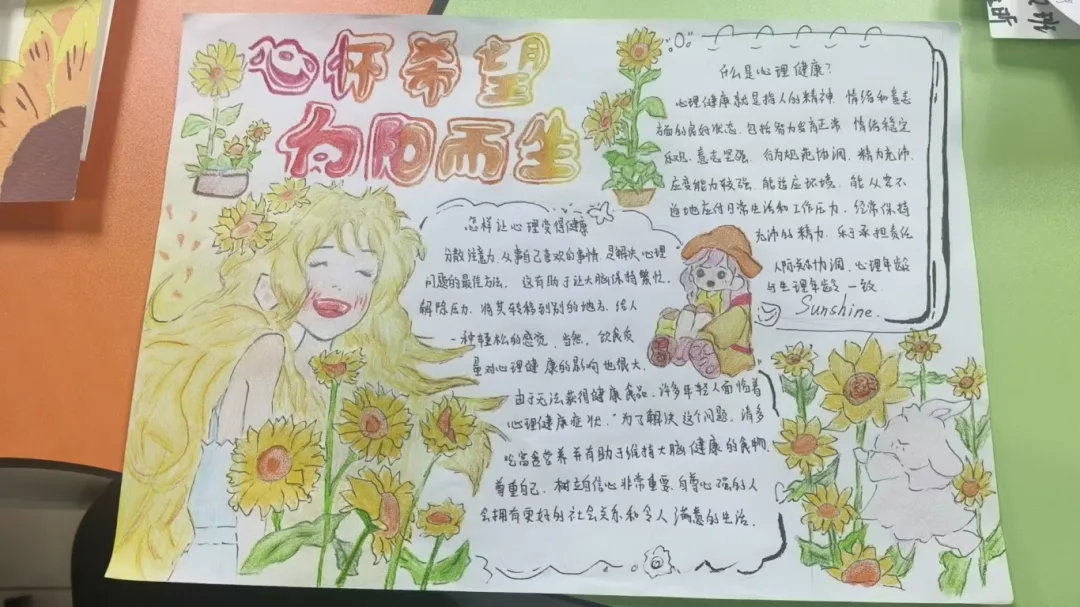 心怀希望
向阳而生
什么是心理健康?
心理健康就是指人的精神、情绪和意志
方面的良好状态。包括智力发育正常、情绪稳定
乐观、意志坚强、行为规范协调、精力充沛、
应变能力较强、能适应环境、能从容不
迫地应付日常生活和工作压力、经常保持
充沛的精力、乐于承担责任
人际关系协调、心理年龄
与生理年龄一致
Sunshine.
怎样让心理变得健康
分散注意力,从事自己喜欢的事情,是解决心理
问题的最佳方法。这有助于让大脑保持繁忙,
解除压力,将其转移到别的地方,给人
一种轻松的感觉,当然,饮食质
量对心理健康的影响也很大。
由于无法获得健康食品,许多年轻人面临着
心理健康症状,"为了解决这个问题,请多
吃富含营养并有助于维持大脑健康的食物。
尊重自己,树立自信心非常重要,自尊心强的人
会拥有更好的社会关系和令人满意的生活。
班